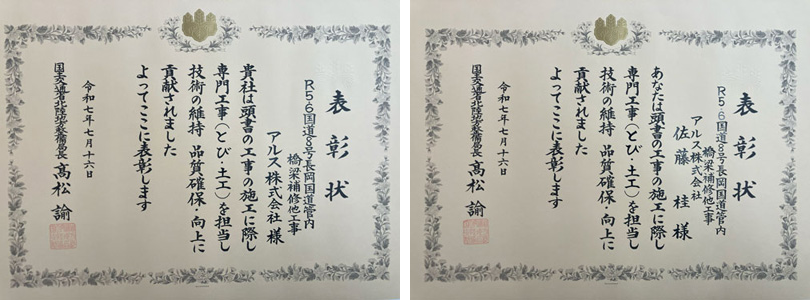 表彰状
R5・6国道8号長岡国道管内
橋梁補修他工事
アルス株式会社 様
貴社は頭書の工事の施工に際し
専門工事(とび・土工)を担当し
技術の維持 品質確保・向上に
貢献されました
よってここに表彰します
令和七年七月十六日
国土交通省北陸地方整備局長 髙松 諭
表彰状
R5・6国道8号長岡国道管内
橋梁補修他工事
アルス株式会社
佐藤 桂 様
あなたは頭書の工事の施工に際し
専門工事(とび・土工)を担当し
技術の維持 品質確保・向上に
貢献されました
よってここに表彰します
令和七年七月十六日
国土交通省北陸地方整備局長 髙松 諭